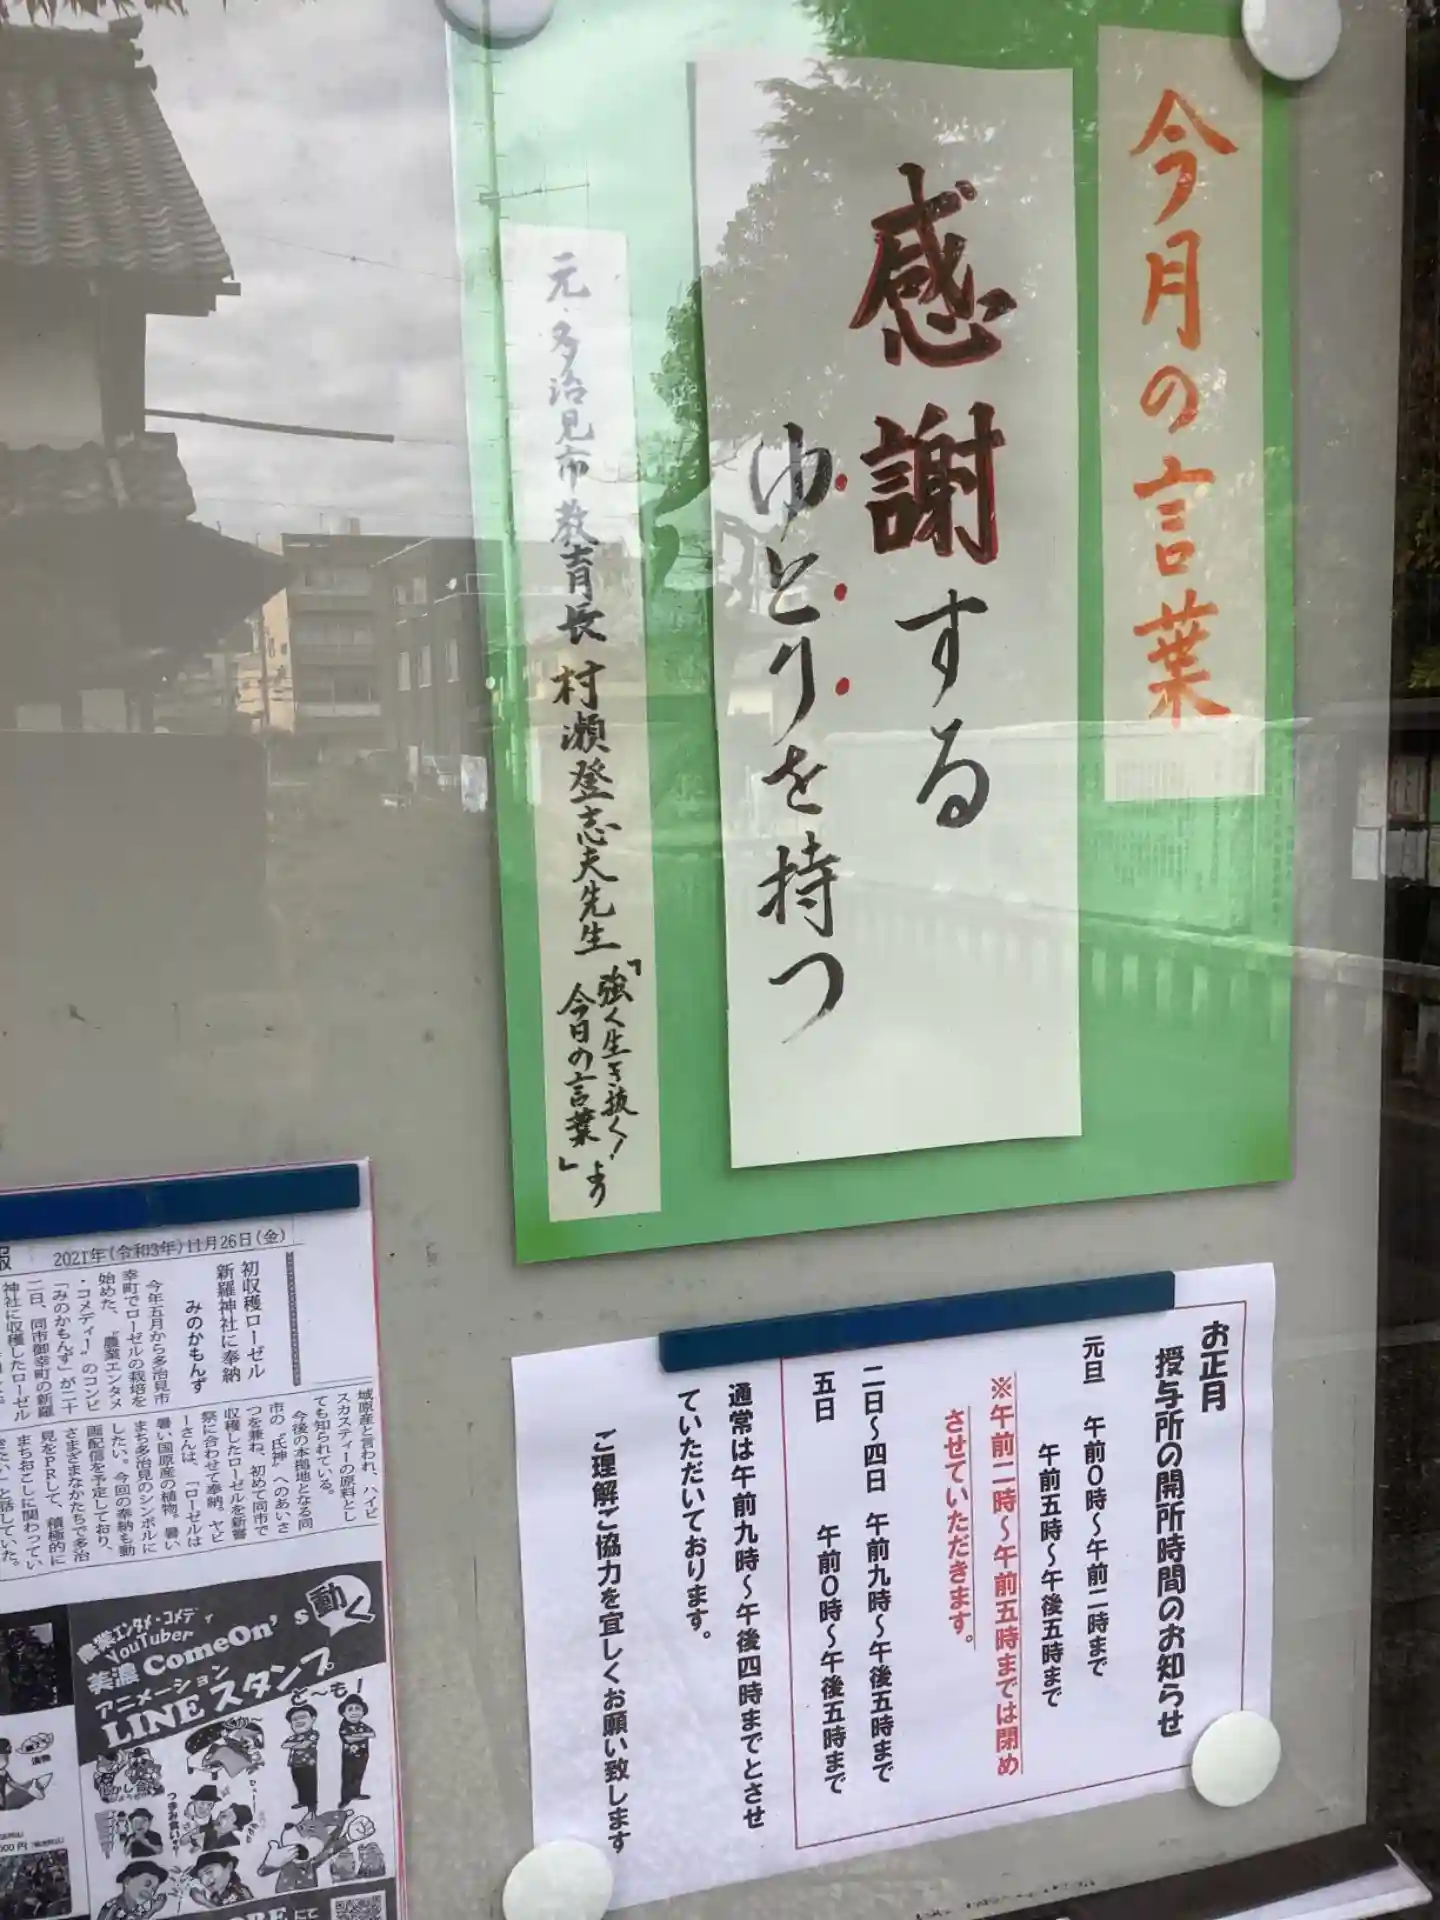 今月の言葉
感謝する
ゆとりを持つ
元・多治見市教育長 村瀬登志夫先生
「強く生き抜く!
今日の言葉」より
お正月
授与所の開所時間のお知らせ
元旦 午前0時～午前二時まで
午前五時～午後五時まで
※午前二時～午前五時までは閉め
させていただきます。
二日～四日 午前九時～午後五時まで
五日 午前0時～午後五時まで
通常は午前九時～午後四時までとさせ
ていただいております。
ご理解ご協力を宜しくお願い致します
報 2021年(令和3年)11月26日(金)
初収穫ローゼル
新羅神社に奉納
みのかもんず
今年五月から多治見市
幸町でローゼルの栽培を
始めた、“農業エンタメ
・コメディー”のコンビ
「みのかもんず」が二十
二日、同市御幸町の新羅
神社に収穫したローゼル
域原産と言われ、ハイビ
スカスティーの原料とし
ても知られている。
今後の本拠地となる同
市の“氏神”へのあいさ
つを兼ね、初めて同市で
収穫したローゼルを新嘗
祭に合わせて奉納。ヤビ
ーさんは、「ローゼルは
暑い国原産の植物。暑い
まち多治見のシンボルに
したい。今回の奉納も動
画配信を予定しており、
さまざまなかたちで多治
見をPRして、積極的に
まちおこしに関わってい
きたい」と話していた。
農業エンタメ・コメディ
YouTuber
美濃ComeOn's
動く
アニメーション
LINEスタンプ
ど～も!